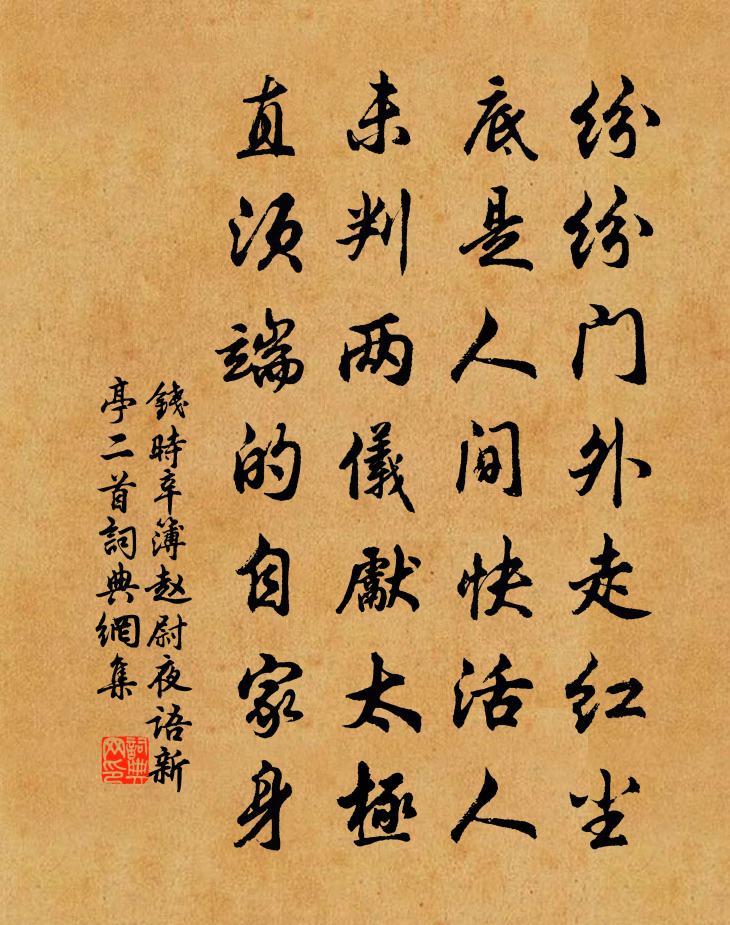 纷纷门外走红尘
底是人间快活人
未判两仪献太极
直须端的自家身
錢時辛簿赵尉夜语新
亭二首詞典網集
詞典
网印